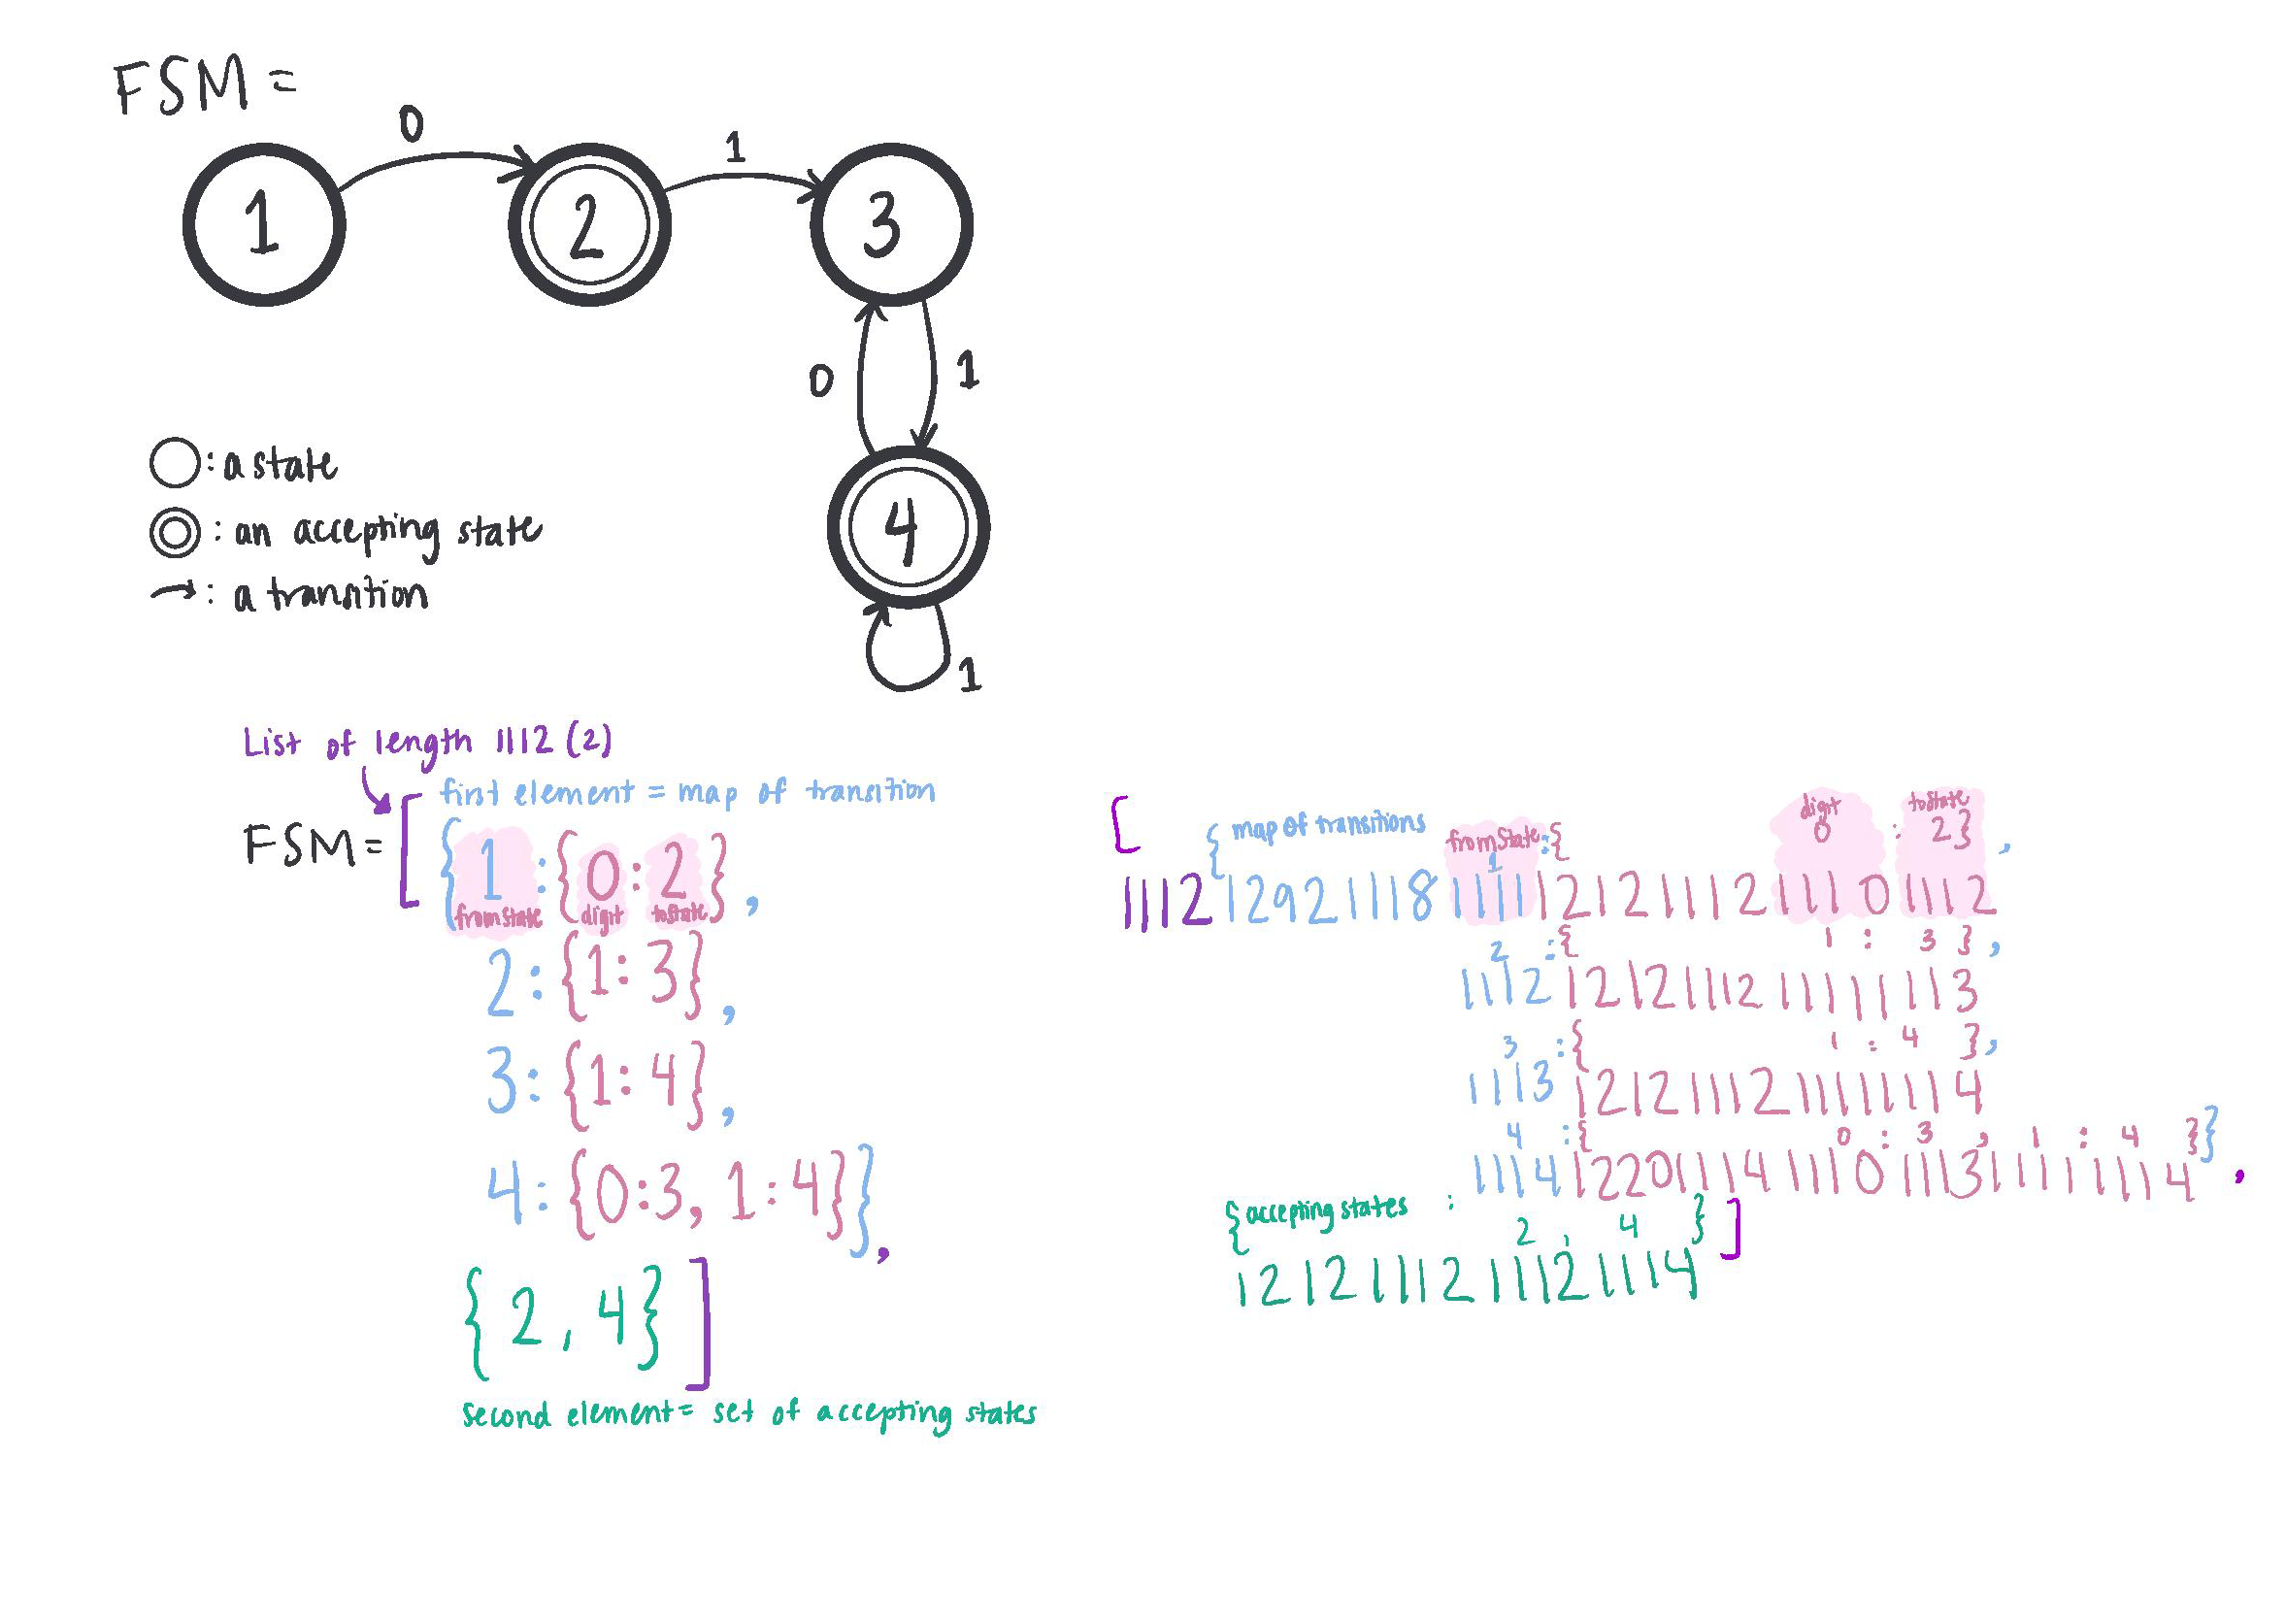 FSM =
0
1
1 2 3
0 1
: a state
: an accepting state
4
: a transition
1
List of length 1112 (2)
first element = map of transition
FSM = [ { 1 : { 0 : 2 } ,
fromstate digit tostate
2 : { 1 : 3 } ,
3 : { 1 : 4 } ,
4 : { 0 : 3 , 1 : 4 } } ,
{ 2 , 4 } ]
second element = set of accepting states
[ { map of transitions fromstate : { digit : tostate
1 0 2 } ,
1112 12921118 1111 12121112 1110 1112
2 : { 1 : 3 } ,
1112 12121112 1111 1113
3 : { 1 : 4 } ,
1113 12121112 1111 1114
4 : { 0 : 3 , 1 : 4 } } ,
1114 12201114 1110 1113 1111 1114
{ accepting states : 2 , 4 } ]
12121112 1112 1114